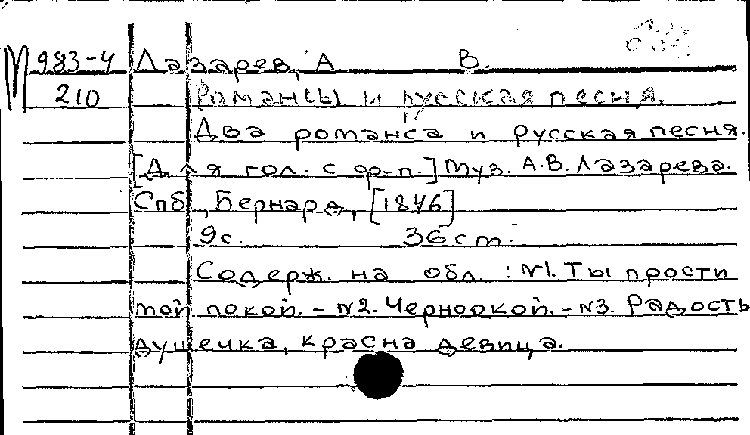 М 983-4 Лазарев, А В.
210 Романсы и русская песня.
Два романса и русская песня.
[Для гол. с ф-п.] Муз. А.В. Лазарева.
Спб., Бернард, [1846]
9с. 36 см.
Содерж. на обл.: №1. Ты прости
мой покой. - №2. Черноокой. - №3. Радость
душечка, красна девица.